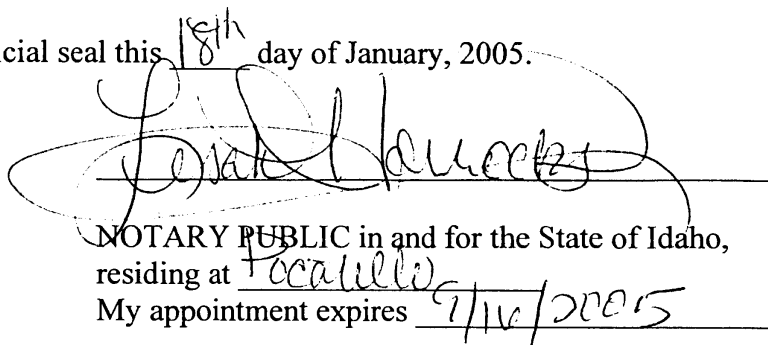 cial seal this 18th day of January, 2005.
NOTARY PUBLIC in and for the State of Idaho,
residing at Pocatello
My appointment expires 9/16/2005